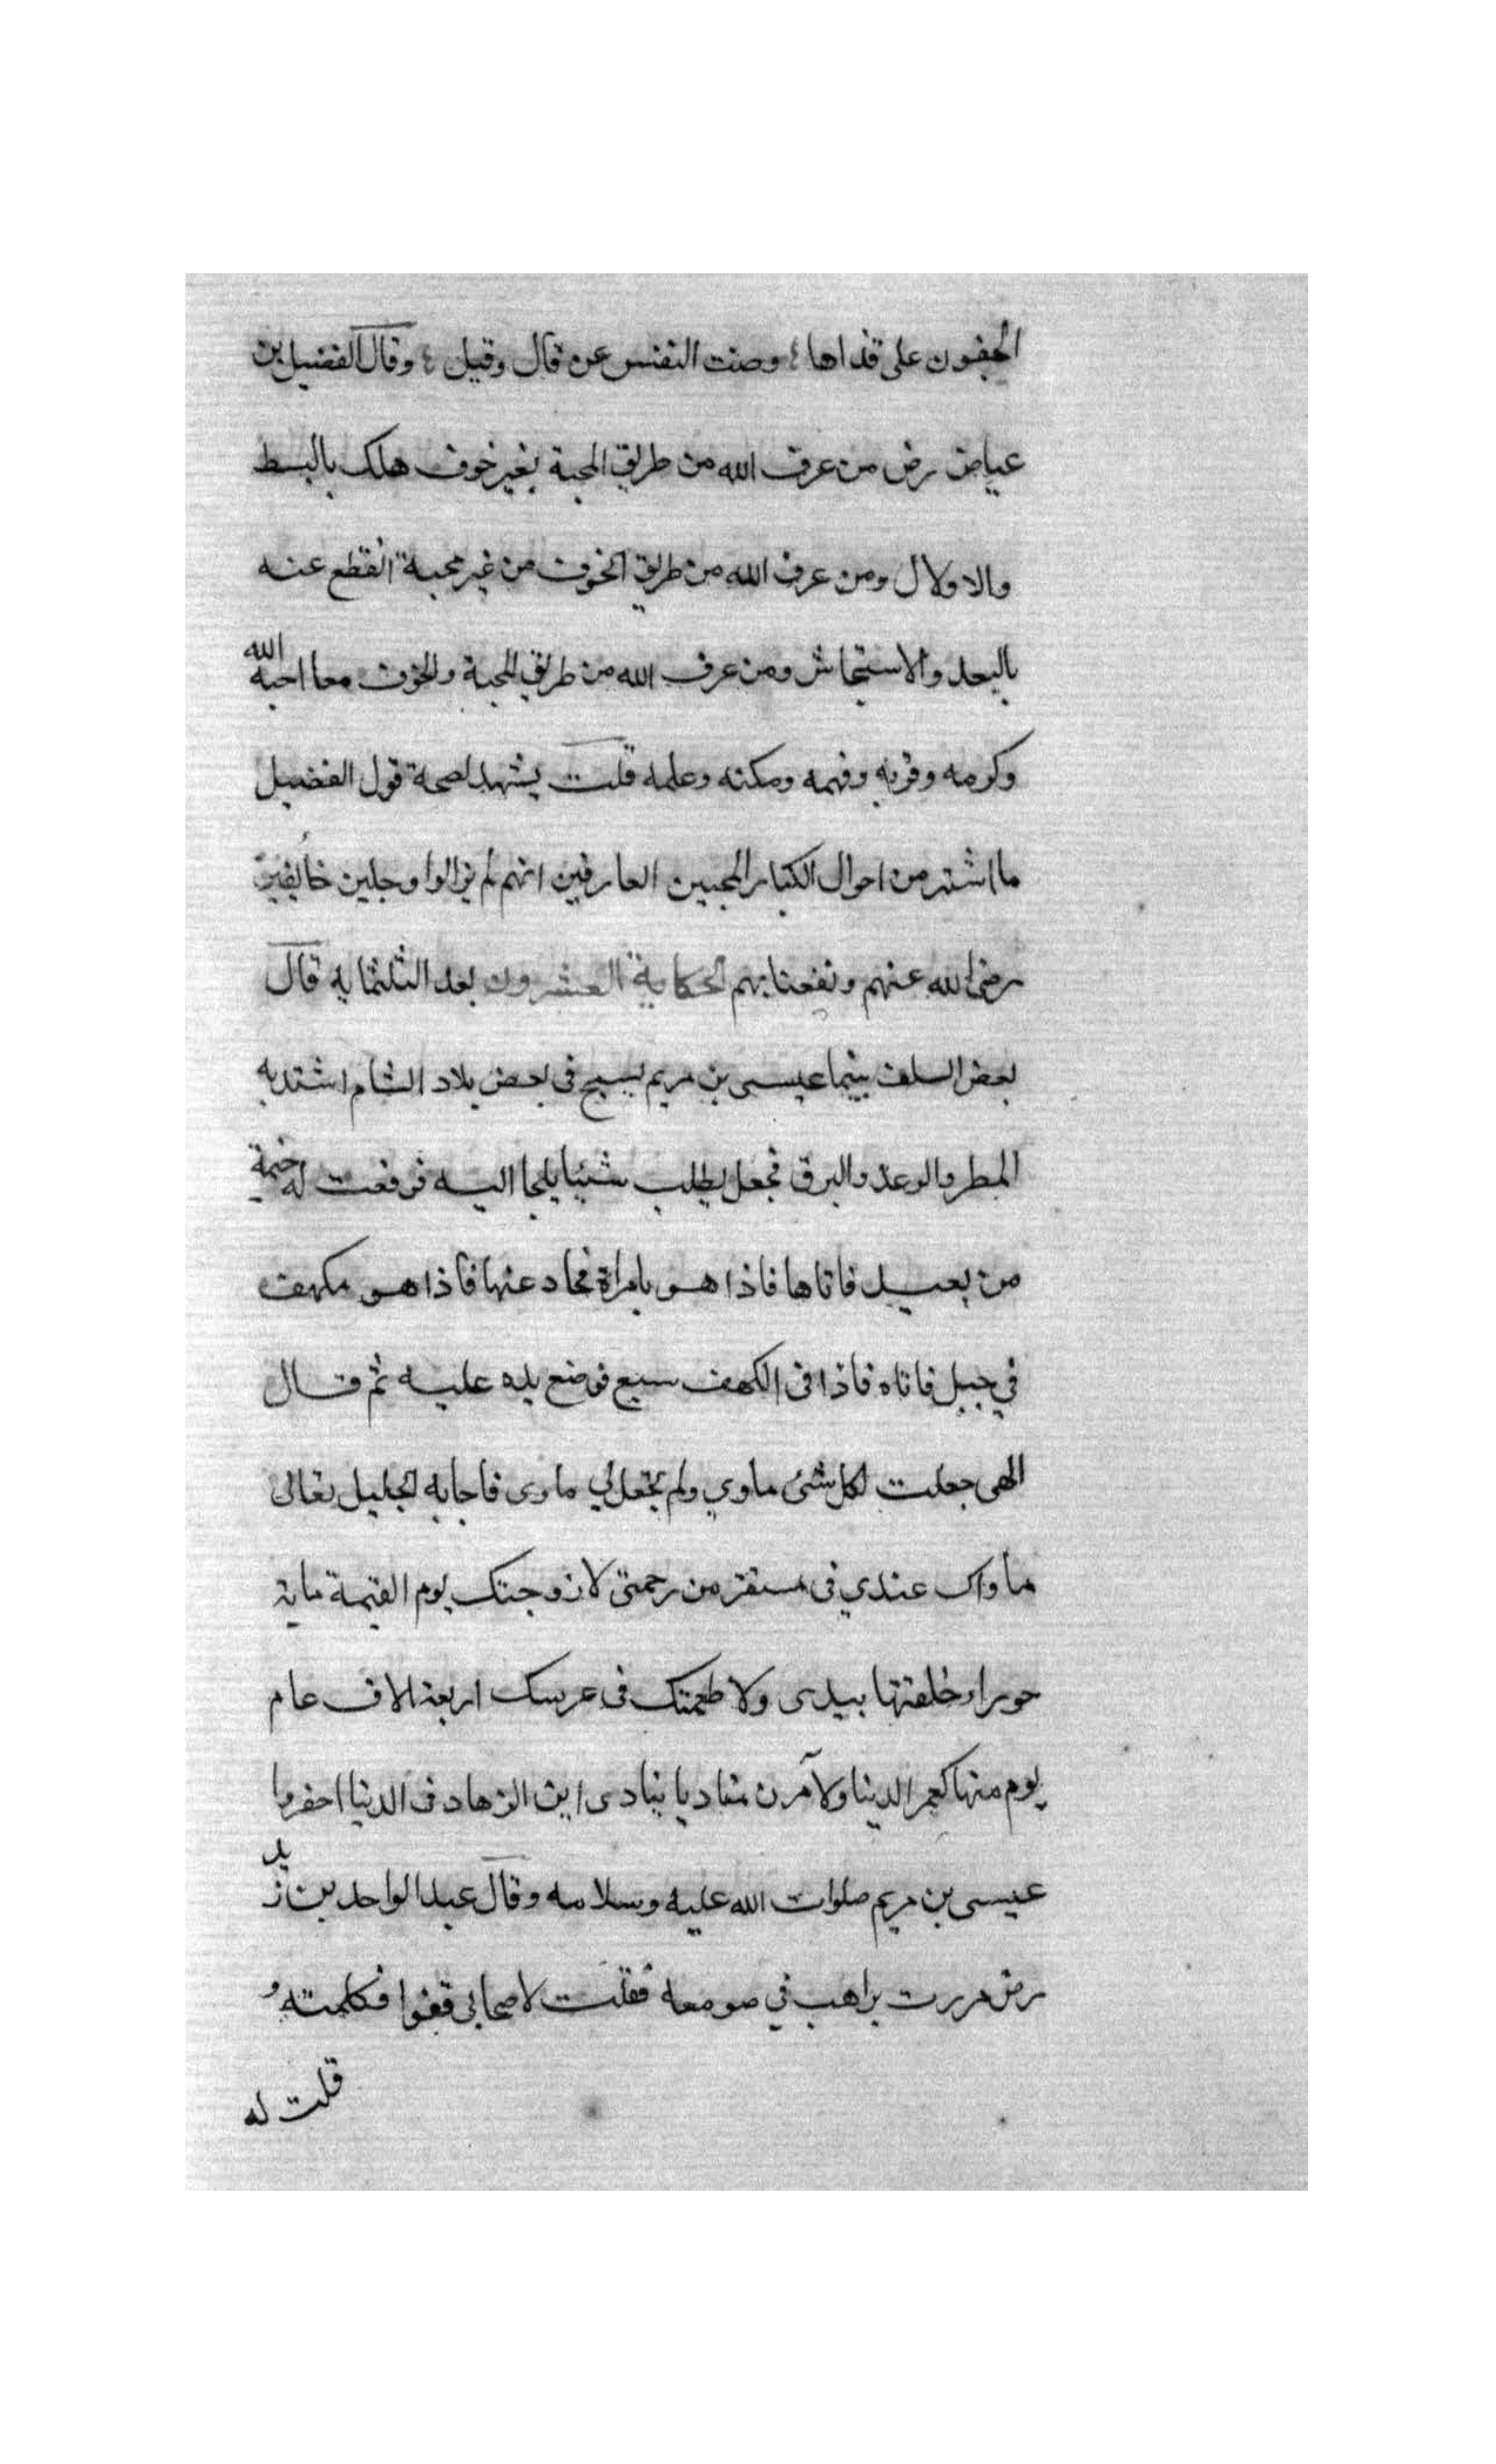 الجفون على قذاها ؛ وصنت النفس عن قال وقيل ؛ وقال الفضيل بن
عياض رض من عرف الله من طريق المحبة بغير خوف هلك بالبسط
والاولال ومن عرف الله من طريق الخوف من غير محبة انقطع عنه
بالبعد والاستيحاش ومن عرف الله من طريق المحبة والخوف معا احبه الله
وكرمه وقربه وفهمه ومكنه وعلمه قلت يشهد لصحة قول الفضيل
ما اشتهر من احوال الكبار المحبين العارفين انهم لم يزالوا وجلين خايفين
رضي الله عنهم ونفعنا بهم الحكاية العشرون بعد الثلثماية قال
بعض السلف بينما عيسى بن مريم يسيح في بعض بلاد الشام اشتد به
المطر والرعد والبرق فجعل يطلب شيئا يلجا اليه فرفعت له خيمة
من بعيد فاتاها فاذا هو بامراة فحاد عنها فاذا هو بكهف
في جبل فاتاه فاذا في الكهف سبع فوضع يده عليه ثم قال
الهى جعلت لكل شئ ماوي ولم تجعل لي ماوى فاجابه الجليل تعالى
مأواك عندي في مستقر من رحمتي لازوجنك يوم القيمة ماية
حوراء خلقتها بيدى ولاطعمنك فى عرسك اربعة الاف عام
يوم منها كعمر الدينا ولآمرن مناديا ينادى اين الزهاد في الدنيا احضروا
عيسى بن مريم صلوات الله عليه وسلامه وقال عبد الواحد بن زيد
رض مررت براهب في صومعه فقلت لاصحابى قفوا فكلمته
قلت له